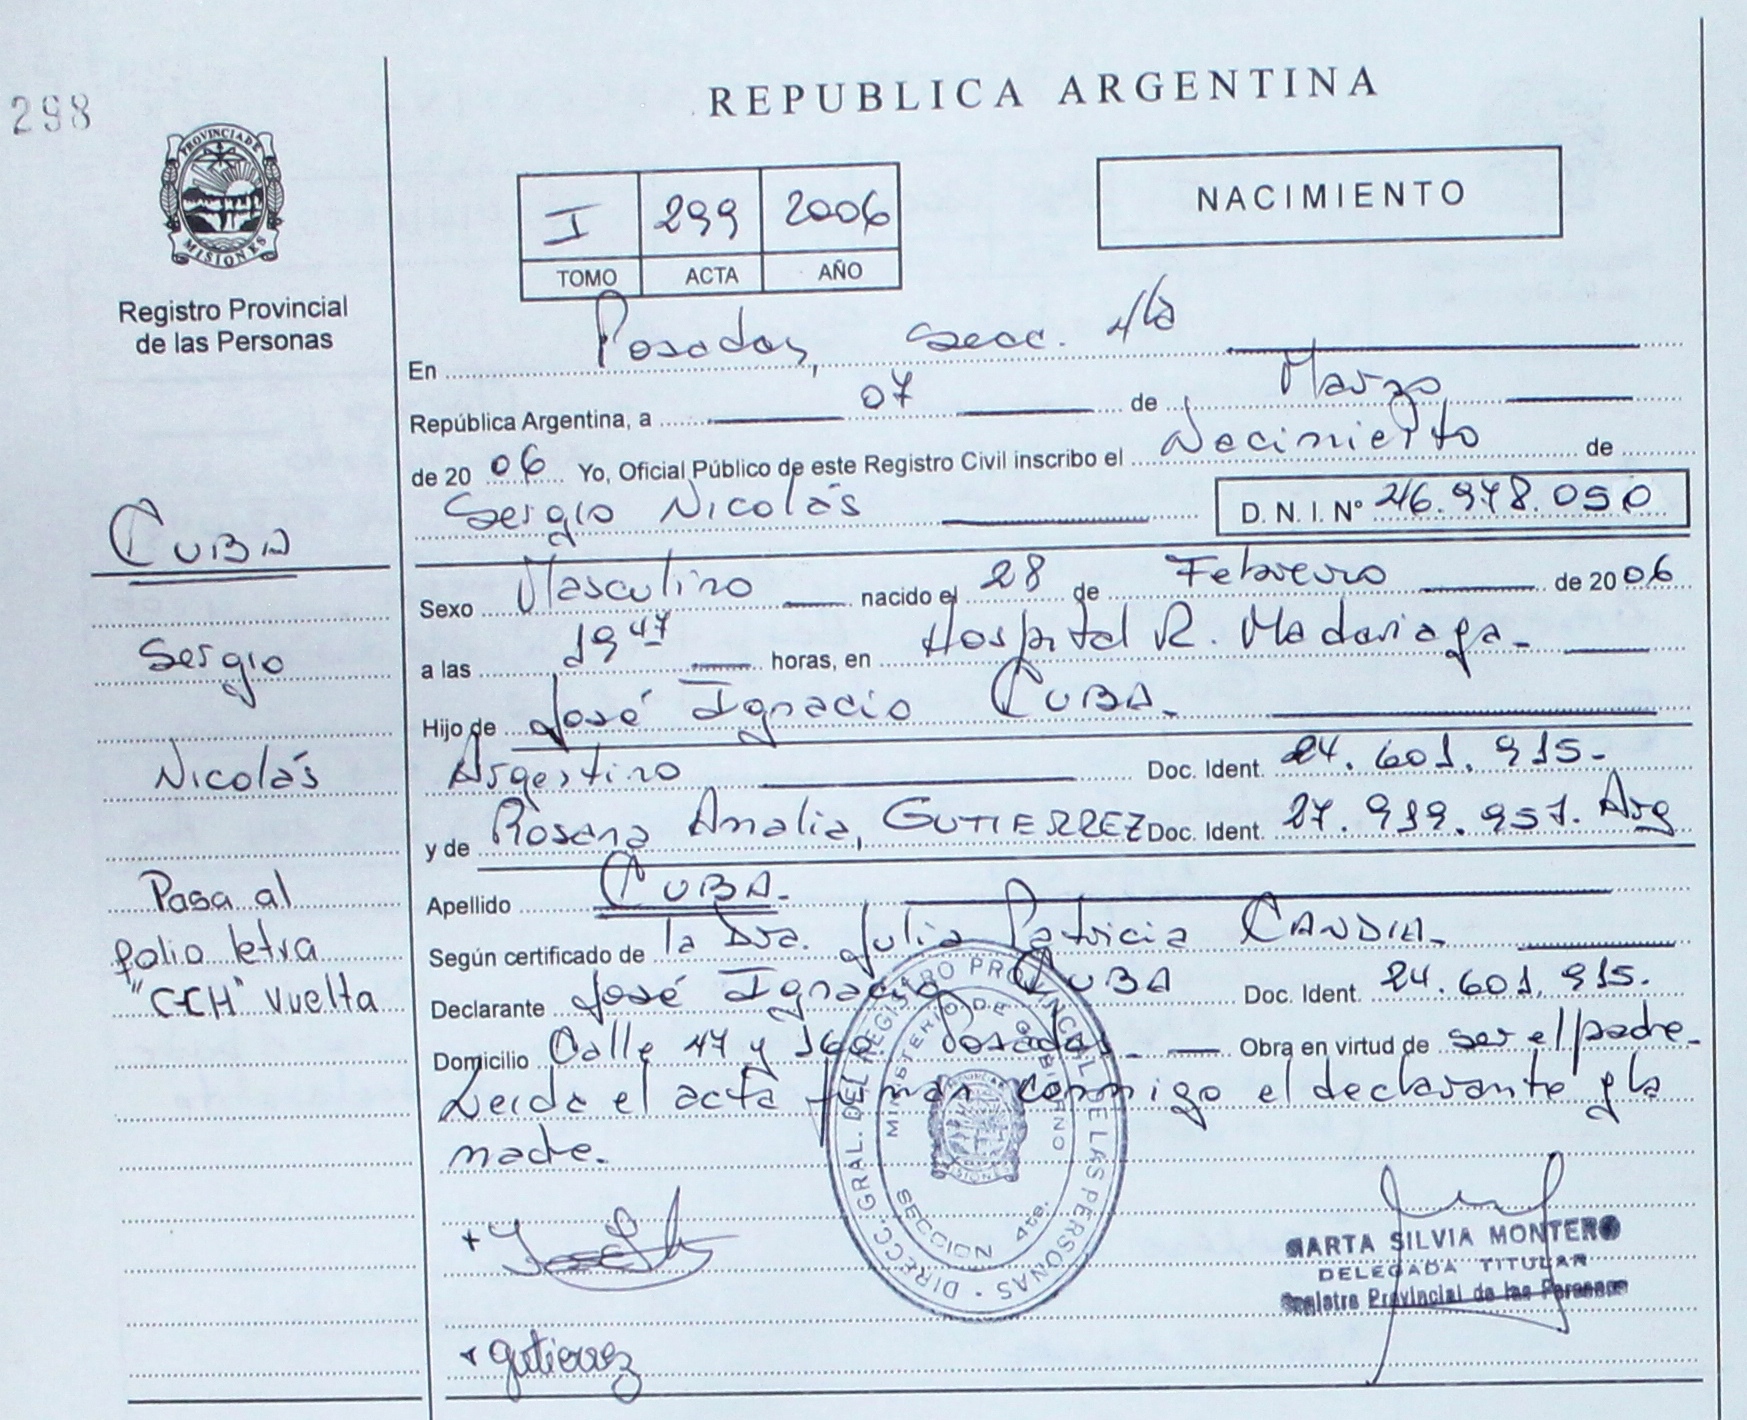 298
REPUBLICA ARGENTINA
PROVINCIA DE MISIONES
Registro Provincial
de las Personas
I 299 2006
TOMO ACTA AÑO
NACIMIENTO
En Posadas, Secc. 4ta
República Argentina, a 07 de Marzo
de 2006 Yo, Oficial Público de este Registro Civil inscribo el Nacimiento de
Sergio Nicolás D. N. I. Nº 46.978.050
CUBA
Sergio
Nicolás
Pasa al
folio letra
"CCH" vuelta
Sexo Masculino nacido el 28 de Febrero de 2006
a las 19 47 horas, en Hospital R. Madariaga-
Hijo de José Ignacio CUBA-
Argentino Doc. Ident. 24.601.915-
y de Rosana Analia, GUTIERREZ Doc. Ident. 27.939.951. Arg
Apellido CUBA-
Según certificado de la Dra. Julia Patricia CANDIA-
Declarante José Ignacio CUBA Doc. Ident. 24.601.915.
Domicilio Calle 47 y 160 Posadas- Obra en virtud de ser el padre-
Leida el acta firman conmigo el declarante y la
madre-
DIRECC. GRAL. DEL REGISTRO PROVINCIAL DE LAS PERSONAS
MINISTERIO DE GOBIERNO
SECCION 4ta.
MARTA SILVIA MONTERO
DELEGADA TITULAR
Registro Provincial de las Personas
gutierrez